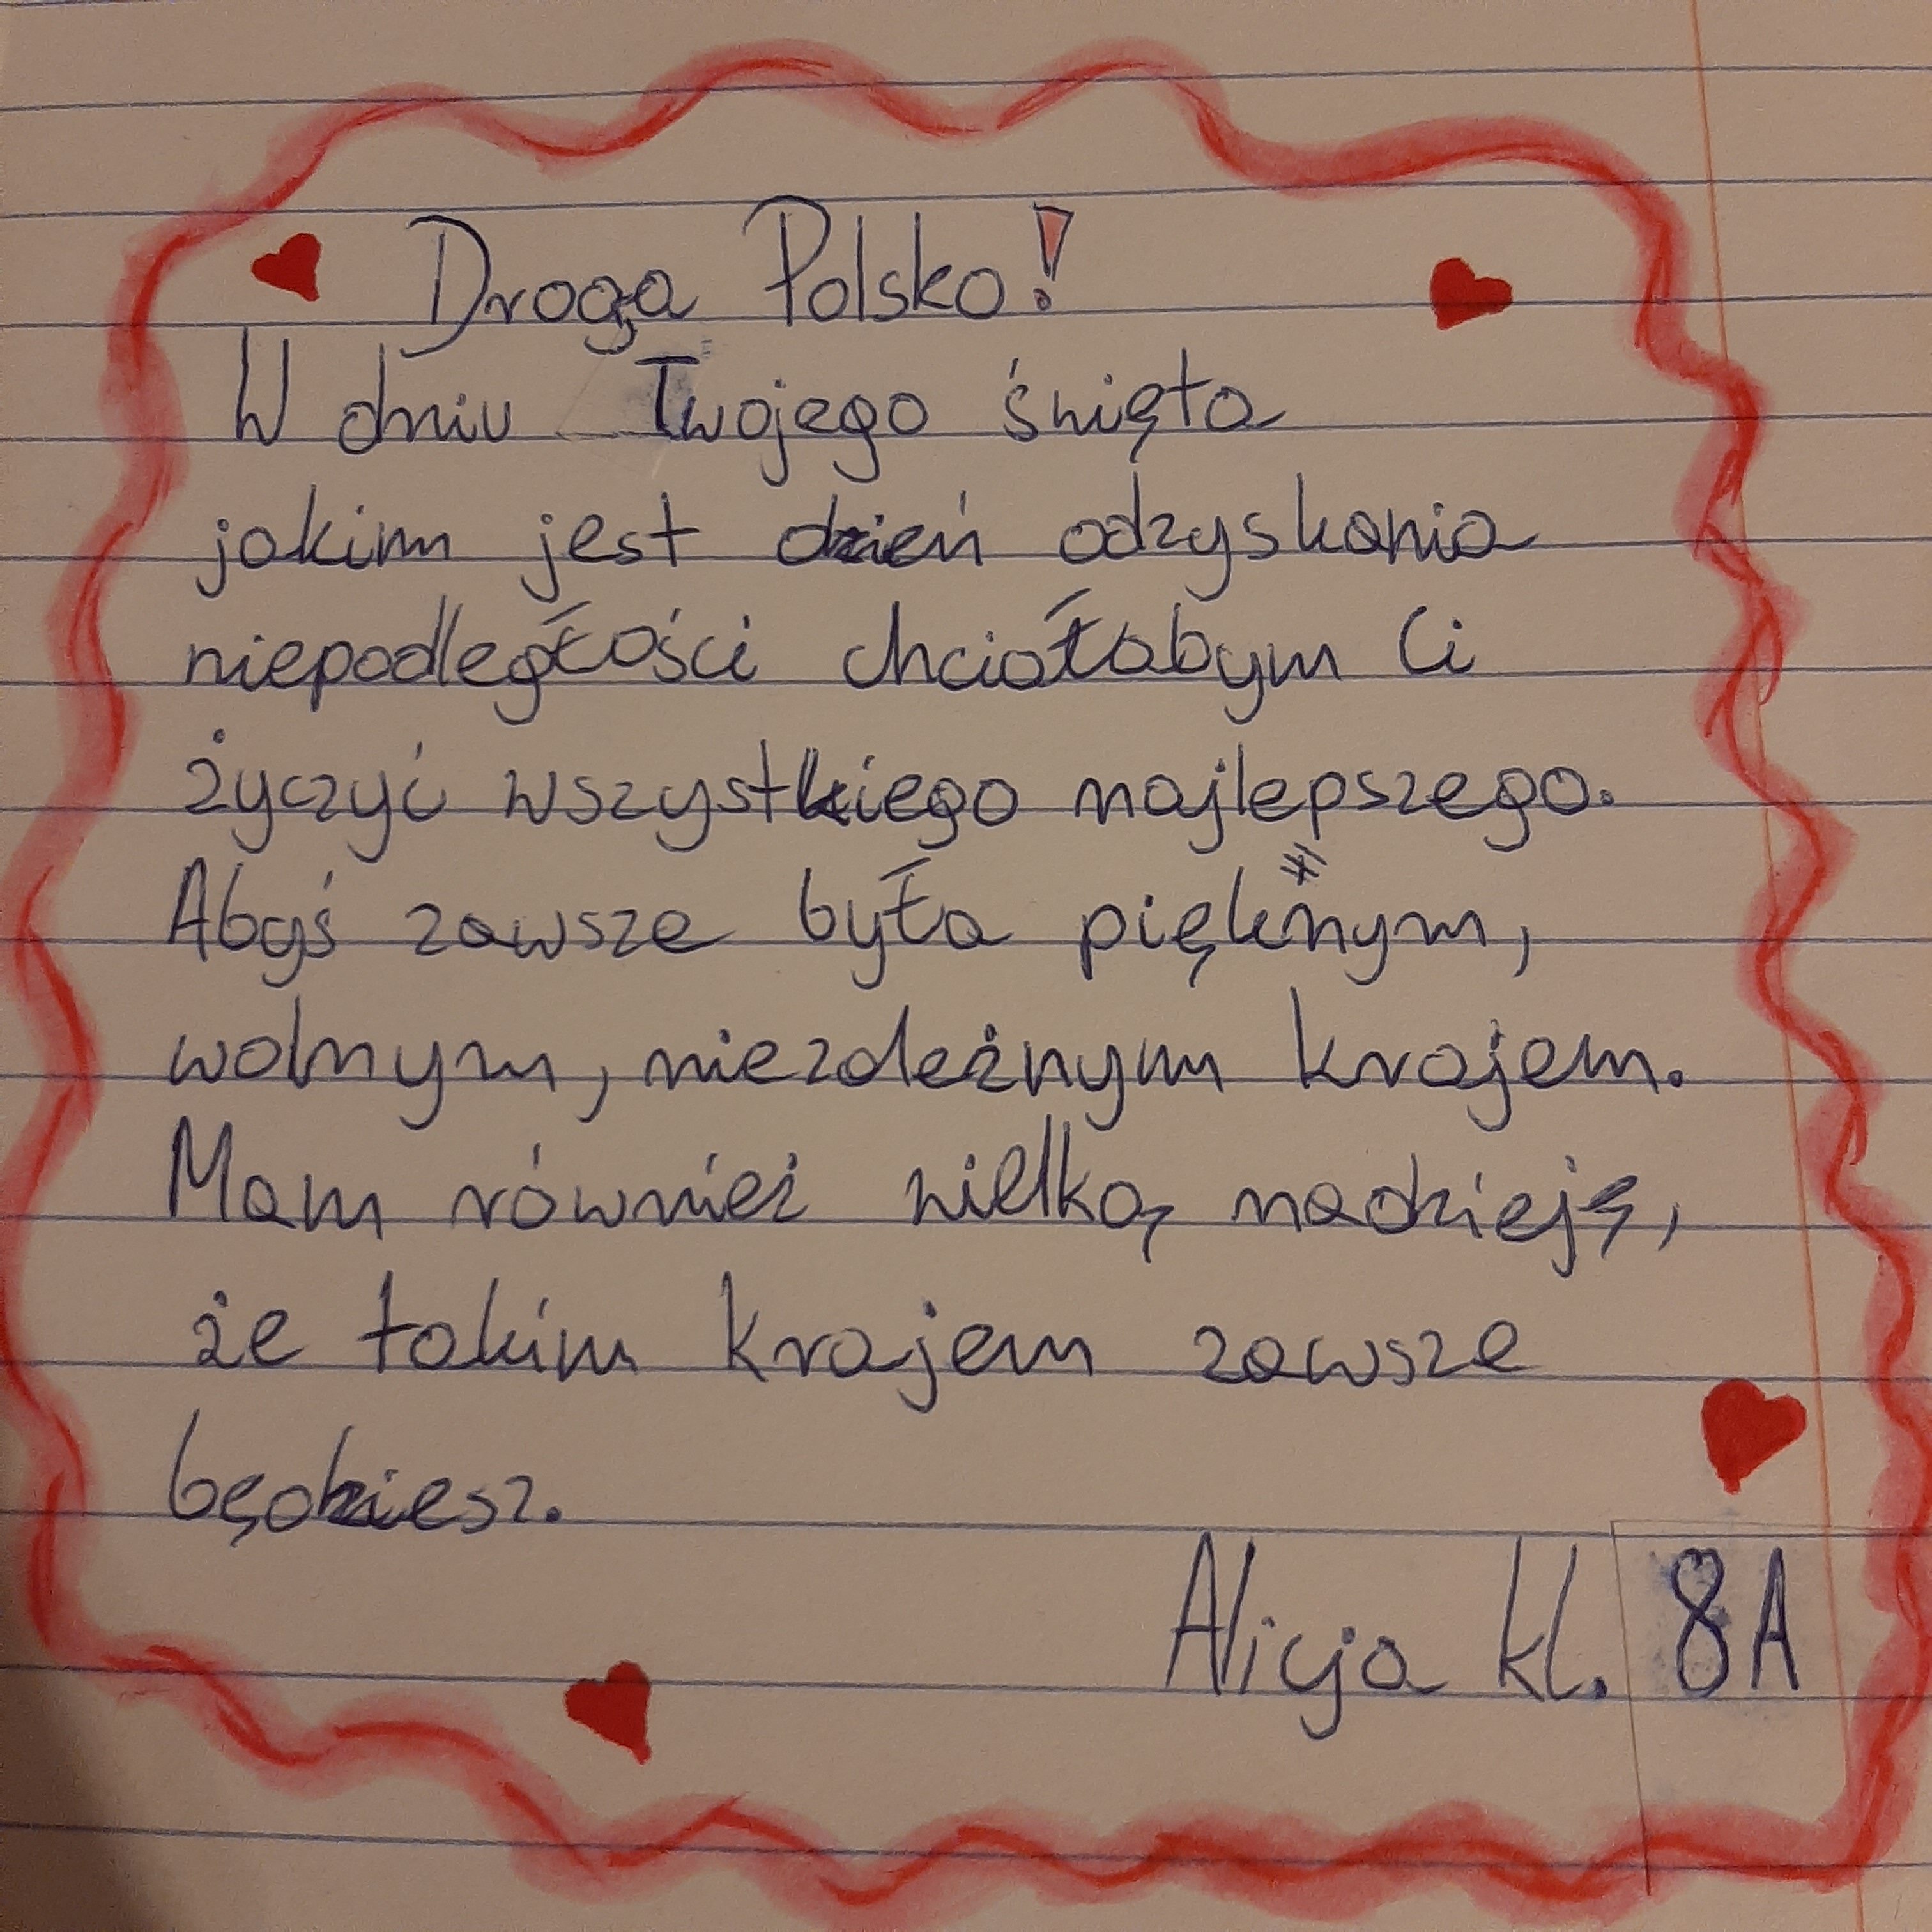 Droga Polsko!
W dniu Twojego święta
jakim jest dzień odzyskania
niepodległości chciałabym Ci
życzyć wszystkiego najlepszego.
Abyś zawsze była pięknym,
wolnym, niezależnym krajem.
Mam również wielką nadzieję,
że takim krajem zawsze
będziesz.
Alicja kl. 8A